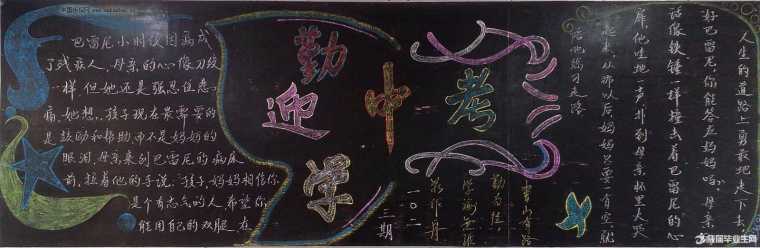 巴雷尼小时候因病成
了残疾人，母亲的心像刀绞
一样，但她还是强忍住悲
痛。她想，孩子现在最需要的
是鼓励和帮助，而不是妈妈的
眼泪。母亲来到巴雷尼的病床
前，拉着他的手说：“孩子，妈妈相信你
是个有志气的人，希望你
能用自己的双腿，在
勤学
迎中考
人生的道路上勇敢地走下去！
好巴雷尼，你能答应妈妈吗？”母亲
话像铁锤一样撞击着巴雷尼的心
扉，他“哇”地一声，扑到母亲怀里大哭
起来。从那以后，妈妈只要一有空就
给他练习走路
书山有路
勤为径，
学海无涯
苦作舟
一〇二
三期